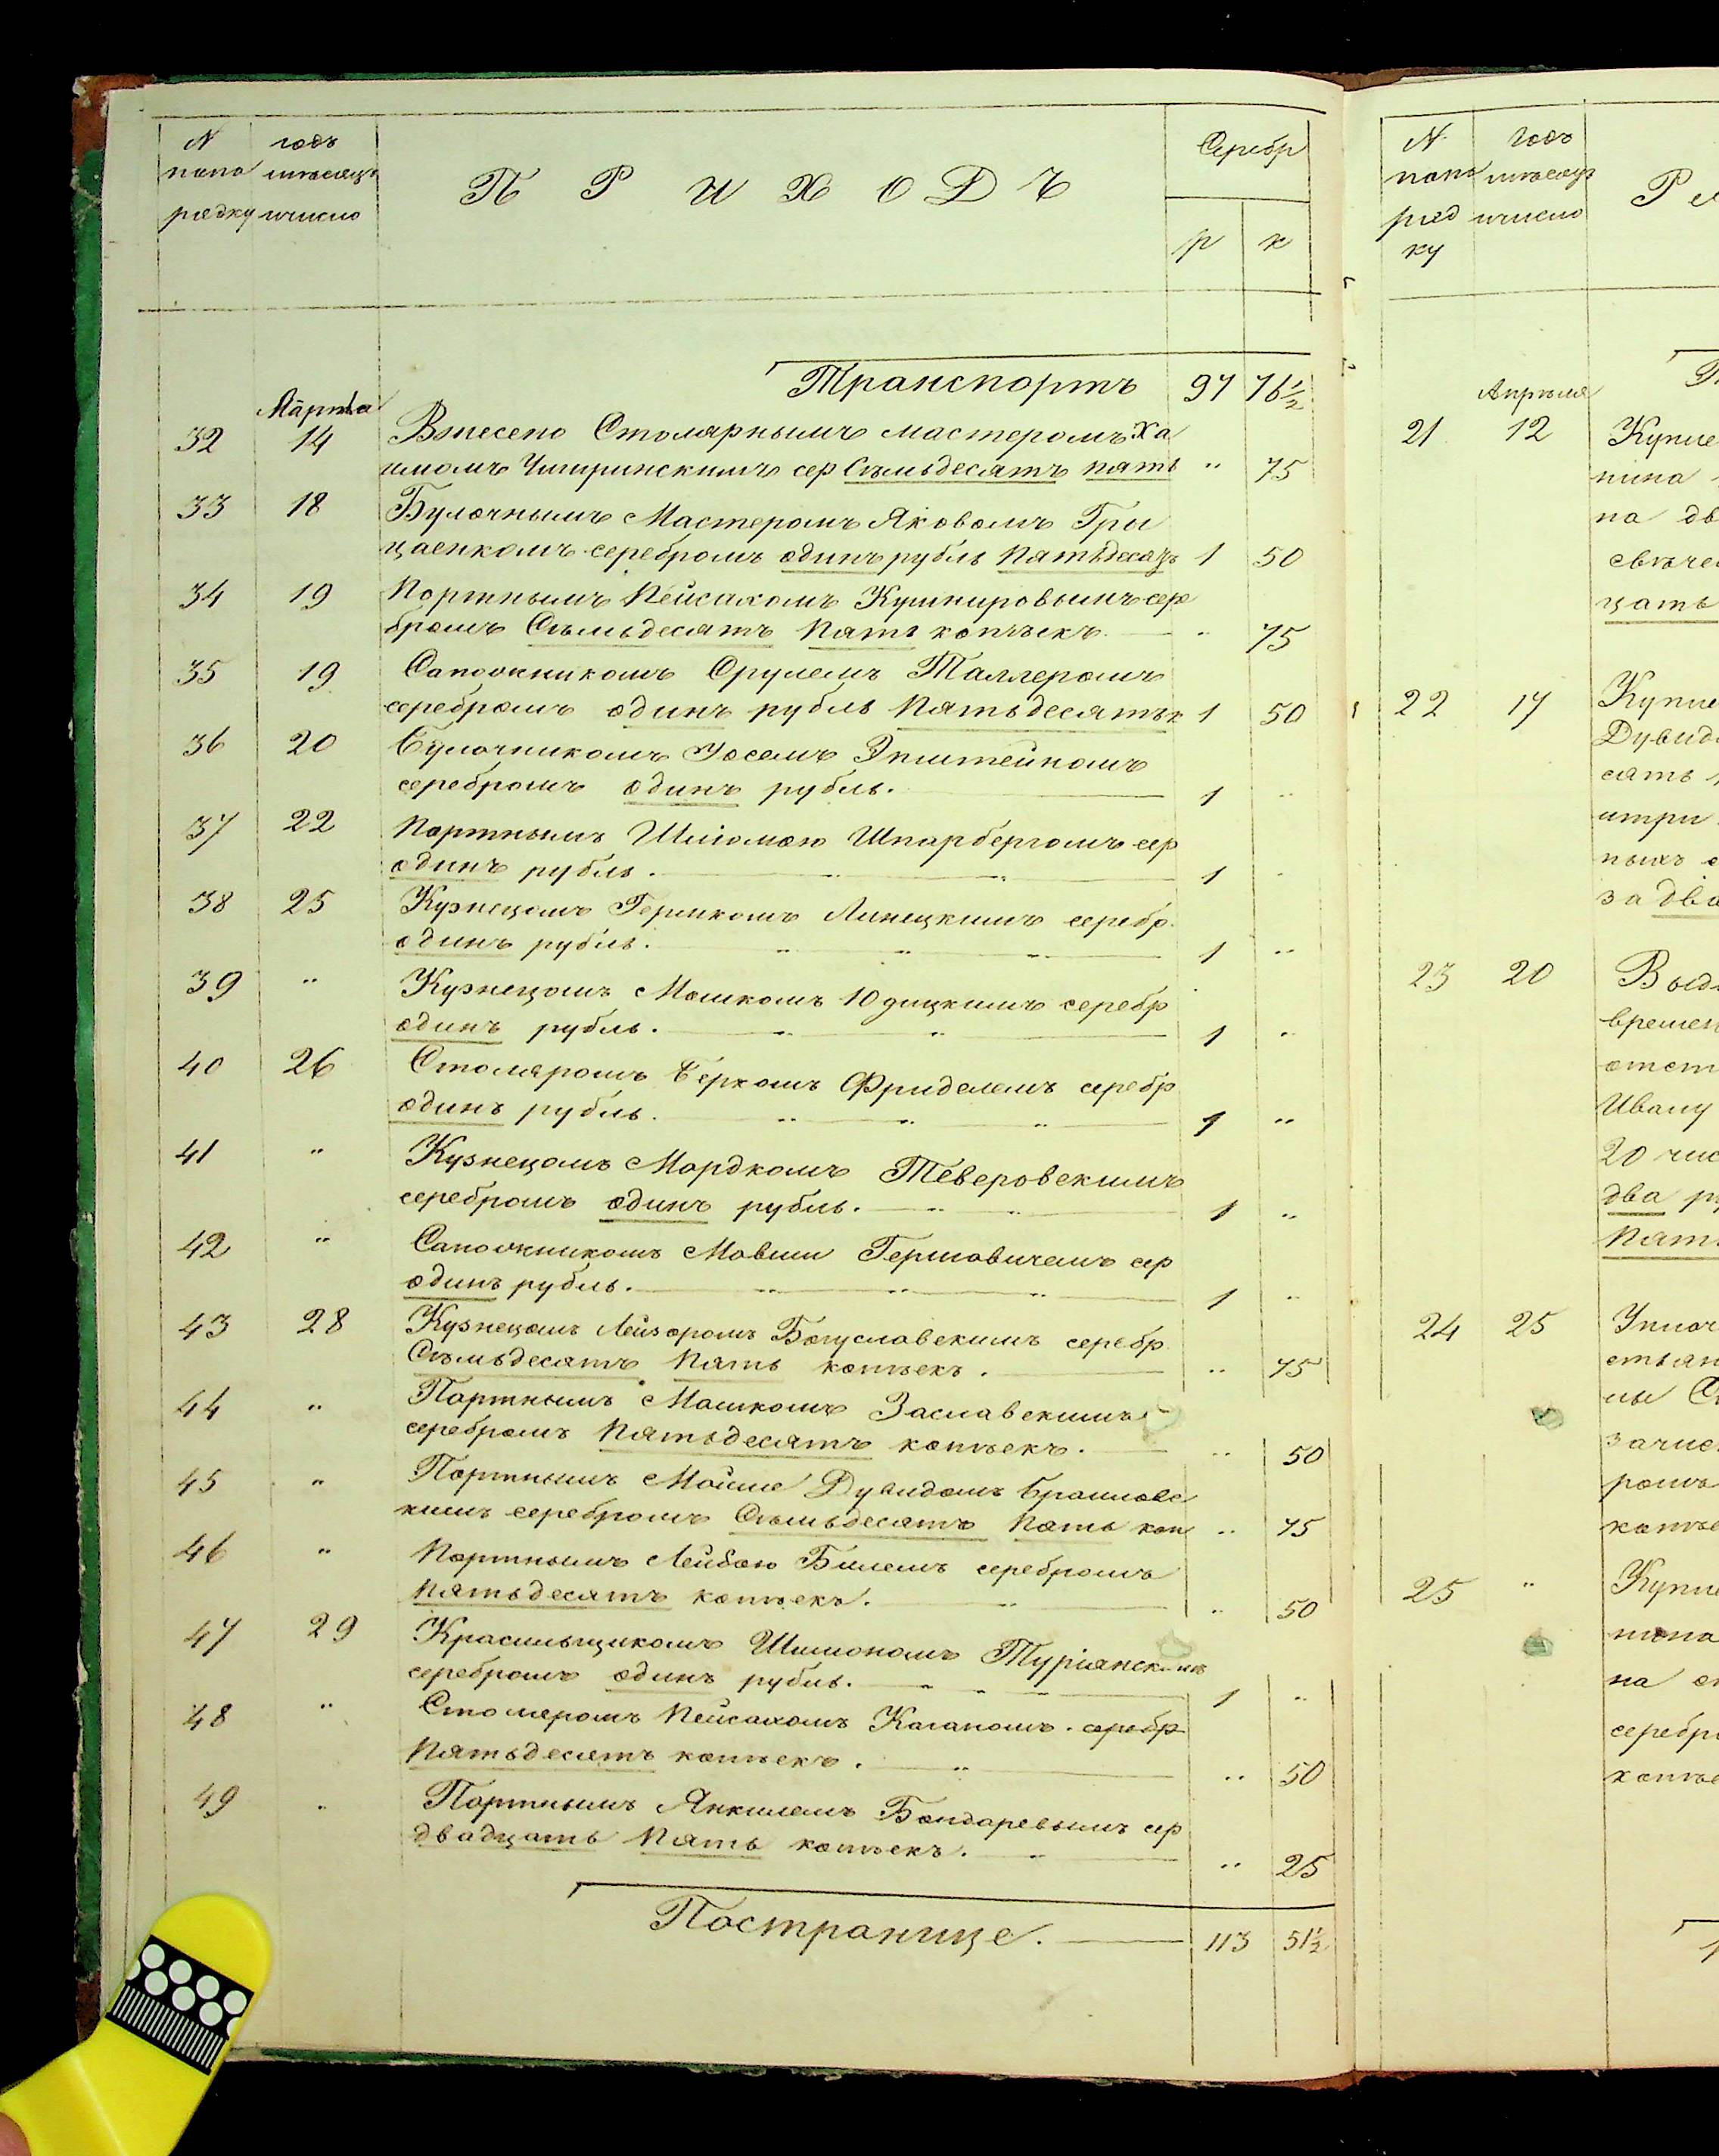 N годъ
попо мѣсяцъ
рядку ичисло
ПРИХОДЪ
Серебр
р к
Транспортъ 97 76½
Марта
32 14 Взнесено Столярнымъ мастеромъ Ха
имомъ Чигринскимъ сер Съмьдесятъ пять " 75
33 18 Булочнымъ Мастеромъ Яковомъ Гри
цаенкомъ серебромъ одинъ рубль Пятьдесятъ 1 50
34 19 Портнымъ Пейсахомъ Кушнировымъ сере
бромъ Съмьдесятъ Пять копѣекъ. " 75
35 19 Сапожникомъ Срулемъ Таллеромъ
серебромъ одинъ рубль Пятьдесятъ к 1 50
36 20 Булочникомъ Іосемъ Эпштейномъ
серебромъ одинъ рубль. 1 "
37 22 Портнымъ Шліомою Шпарбергомъ сер
одинъ рубль. " " 1 "
38 25 Кузнецомъ Гершкомъ Линецкимъ серебр.
одинъ рубль. " " " 1 "
39 " Кузнецомъ Мошкомъ Юдицкимъ серебр
одинъ рубль. " " 1 "
40 26 Столяромъ Беркомъ Фриделемъ серебр
одинъ рубль. " " " 1 "
41 " Кузнецомъ Мордкомъ Теверовскимъ
серебромъ одинъ рубль. " " 1 "
42 " Сапожникомъ Мовши Гершовичемъ сер
одинъ рубль. " " " 1 "
43 28 Кузнецомъ Лейзоромъ Богуславскимъ серебр
Съмьдесятъ Пять копѣекъ. " 75
44 " Портнымъ Мошкомъ Заславскимъ
серебромъ Пятьдесятъ копѣекъ. " 50
45 " Портнымъ Мойше Дувидомъ Браиловс
кимъ серебромъ Съмьдесятъ Пять коп " 75
46 " Портнымъ Лейбою Билемъ серебромъ
Пятьдесятъ копѣекъ. " " 50
47 29 Красильщикомъ Шимономъ Туріянскимъ
серебромъ одинъ рубль. " " " 1 "
48 " Столяромъ Пейсахомъ Каганомъ. серебр
Пятьдесятъ копѣекъ. " " 50
49 " Портнымъ Янкилемъ Бондаревымъ сер
двадцать Пять копѣекъ. " " 25
Постранице. 113 51½
N. Годъ
попо мѣсяцъ
ряд ичисло
ку
Р
Апрѣля
21 12 Купле
нина
на дв
свѣче
цать
22 17 Купле
Дувид
сять
итри
ныхъ
за два
23 20 Выд
времен
отст
Ивану
20 чис
два р
Пять
24 25 Уплоч
стьян
цы С
зачис
ромъ
копѣе
25 " Купле
нина
на
серебр
копѣе